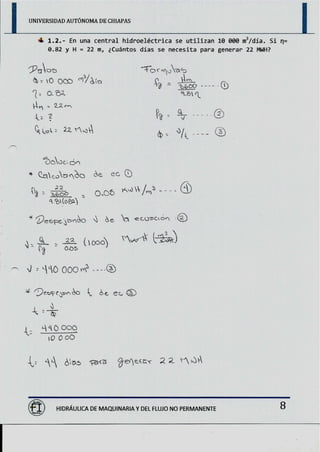 UNIVERSIDAD AUTÓNOMA DE CHIAPAS
1.2.- En una central hidroeléctrica se utilizan 10 000 m³/día. Si η=
0.82 y H = 22 m, ¿Cuántos días se necesita para generar 22 MWH?
Datos
Q = 10 000 m³/día
η = 0.82
Hm = 22m
t = ?
Q tot = 22 MWH
Formulas
Pg = Hm / (3600 / 9.81η) ---- ①
Pg = Q / V ----- ②
Q = V/t ---- ③
Solución
* Calculando de ec ①
Pg = 22 / (3600 / 9.81(0.82)) = 0.05 KWH/m³ ---- ④
* Despejando V de la ecuación ②
V = Q / Pg = 22 / 0.05 (1000)
V = 440 000 m³ ---- ③
* Despejando t de ec ③
t = V / Q
t = 440 000 / 10 000
t = 44 días para generar 22 MWH
HIDRÁULICA DE MAQUINARIA Y DEL FLUJO NO PERMANENTE
8